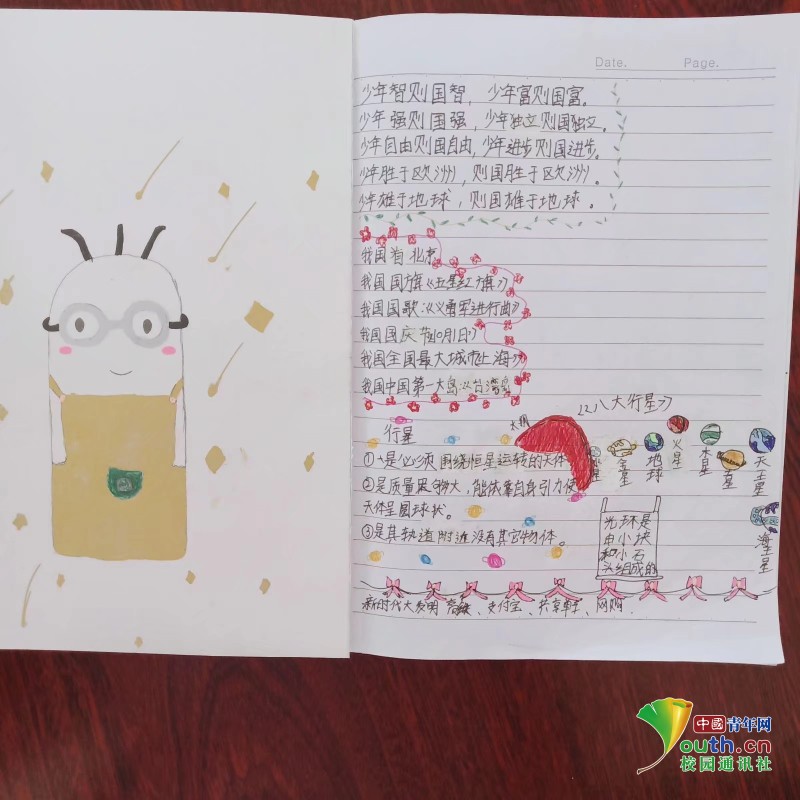 Date.
Page.
少年智则国智，少年富则国富。
少年强则国强，少年独立则国独立。
少年自由则国自由，少年进步则国进步。
少年胜于欧洲，则国胜于欧洲。
少年雄于地球，则国雄于地球。
我国首 北京
我国国旗《五星红旗》
我国国歌《义勇军进行曲》
我国国庆节10月1日》
我国全国最大城市上海》
我国中国第一大岛《台湾岛
《八大行星》
太阳
行星
①是必须围绕恒星运转的天体
②是质量足够大，能依靠自身引力使
天体呈圆球状。
③是其轨道附近没有其它物体。
水星
金星
地球
火星
木星
土星
天王星
海王星
光环是
由小块
和小石
头组成的
新时代大发明 高铁、支付宝、共享单车、网购
中国青年网
youth.cn
校园通讯社